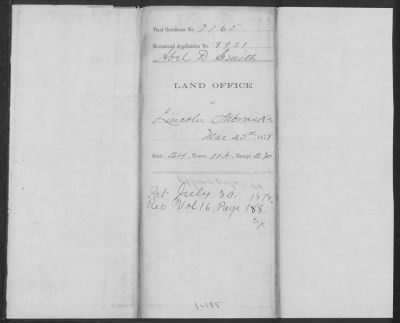 Final Certificate No. 7165
Homestead Application No. 8931
Abel D Smith
LAND OFFICE
Lincoln Nebraska
Mar 25th, 1878
Sect. 24, Town. 11 N., Range 2 W
Pat July 30. 1878.
Rec Vol 16, Page 188.